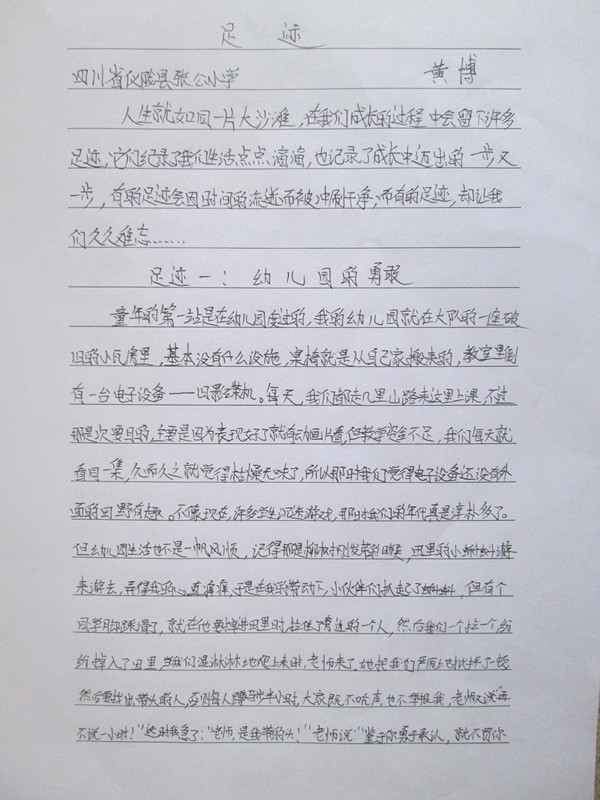 足迹
四川省仪陇县张公小学 黄博
人生就如同一片大沙滩，在我们成长的过程中会留下许多
足迹，它们纪录了我们生活点点滴滴，也记录了成长中迈出的一步又
一步，有的足迹会因时间的流逝而被冲刷干净；而有的足迹，却让我
们久久难忘……
足迹一：幼儿园的勇敢
童年的第一站是在幼儿园度过的，我的幼儿园就在大队的一座破
旧的小瓦房里，基本没有什么设施，桌椅就是从自己家搬来的，教室里倒
有一台电子设备——旧影碟机。每天，我们都走几里山路来这里上课，不过
那是次要目的，主要是因为表现好了就有动画片看，但教学资金不足，我们每天就
看同一集，久而久之就觉得枯燥无味了，所以那时我们觉得电子设备还没有外
面的田野有趣。不像现在，许多学生沉迷游戏，那时我们的年代真是淳朴多了。
但幼儿园生活也不是一帆风顺，记得那是柳树刚发芽的时候，田里的小蝌蚪游
来游去，弄得我的心直痒痒，于是在我的带动下，小伙伴们抓起了蝌蚪，但有个
同学脚踩滑了，就在他要掉进田里时，拉住了旁边的一个人，然后我们一个拉一个，纷
纷掉入了田里，当我们湿淋淋地爬上来时，老师来了。她把我们严厉地批评了一顿
然后要找出带头的人，否则每人蹲马步半小时，大家既不吭声，也不举报我，老师又说“再
不说一小时！”这时我急了：“老师，是我带的头！”老师说：“鉴于你勇于承认，就不罚你